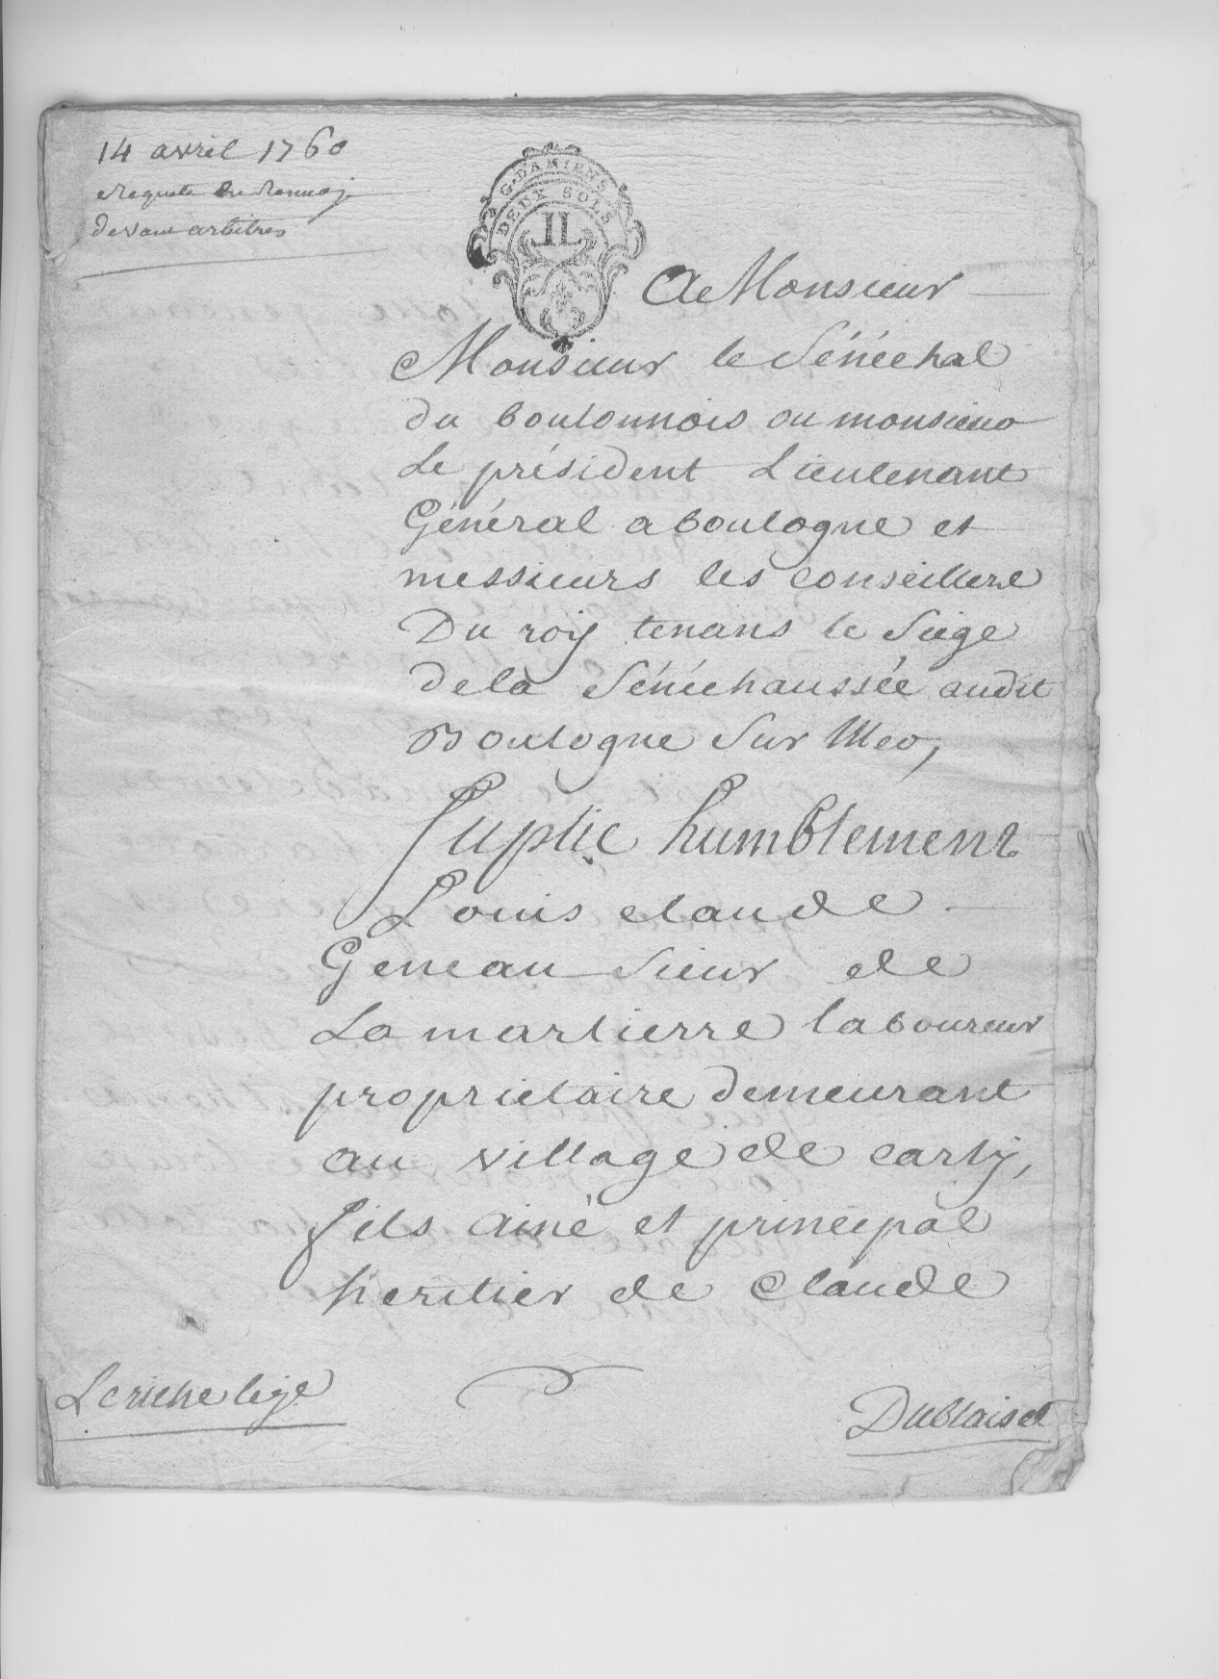 14 avril 1760
Requete en Renvoy
devant arbitres
G. DAMIENS
DEUX SOLS
II
A Monsieur
Monsieur le Sénéchal
du boulonnois ou monsieur
Le président Lieutenant
Général a boulogne et
messieurs les conseillers
Du roy tenans le Siege
de la Sénéchaussée audit
Boulogne Sur Mer,
Suplie humblement
Louis claude
Geneau Sieur de
La martierre laboureur
proprietaire demeurant
au village de carly,
fils ainé et principal
heritier de Claude
Dublaisel